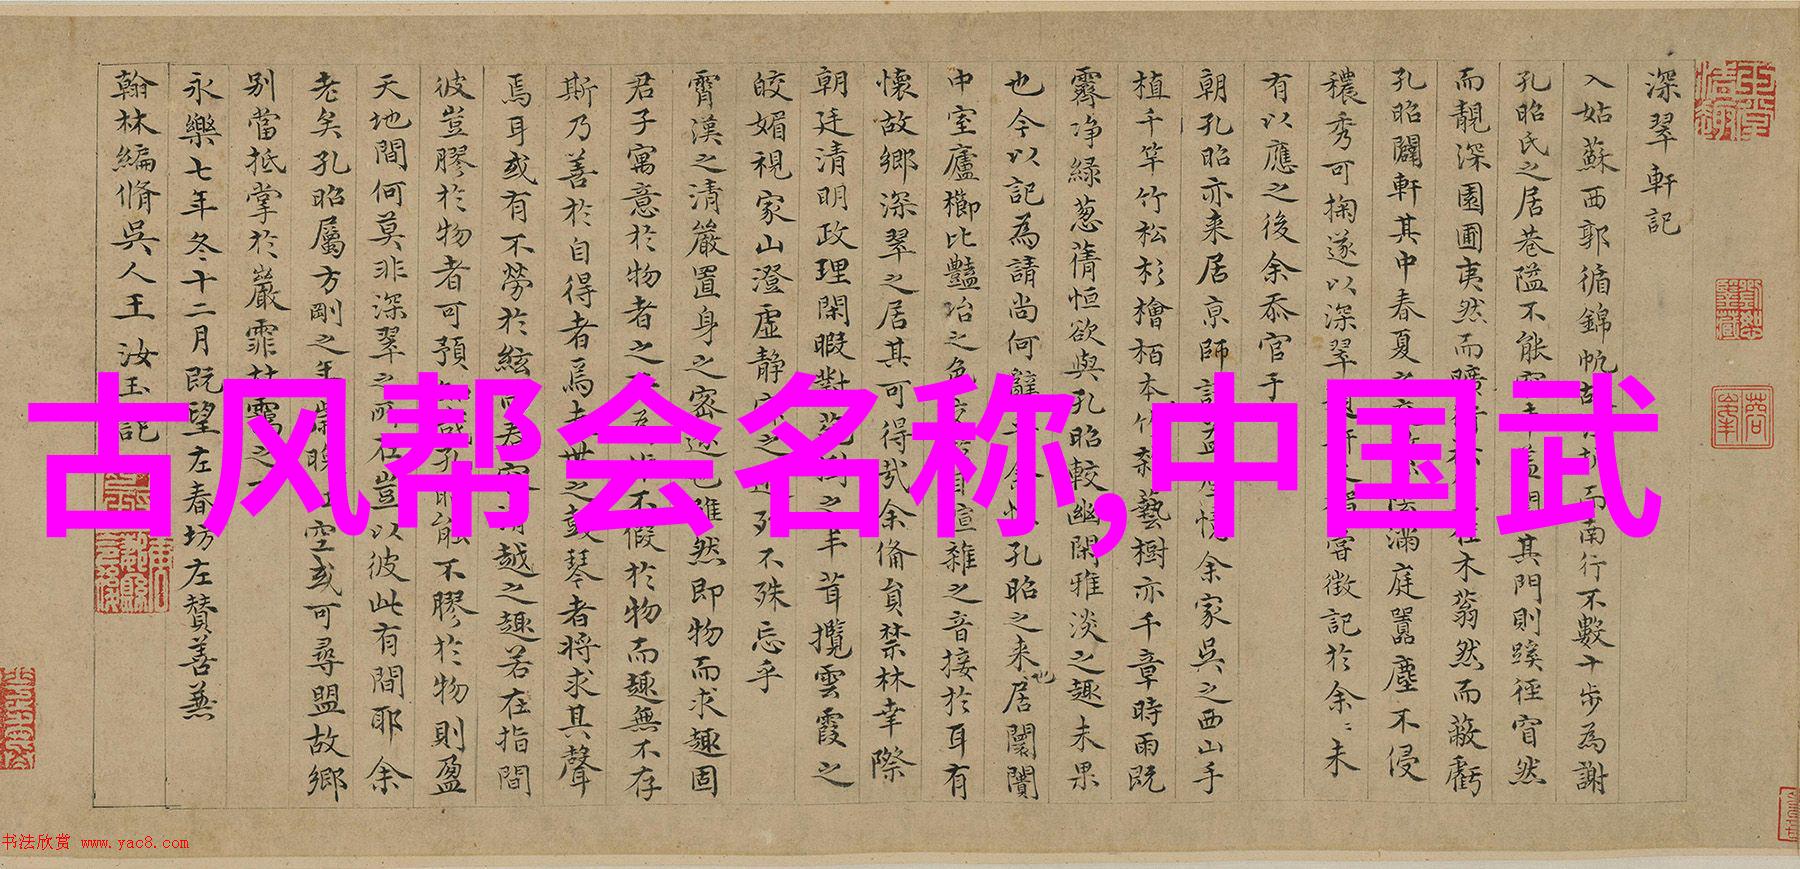 深翠軒記
入姑蘇西郭循錦帆 而南行不數十步為謝
孔昭氏之居巷隘不能 其門則蹊徑窅然
而靚深園圃夷然而曠 木蓊然而蔽虧
孔昭闢軒其中春夏之 滿庭囂塵不侵
穠秀可掬遂以深翠 嘗徵記於余余未
有以應之後余忝官于
朝孔昭亦来居京師 余家吳之西山手
植千竿竹松杉檜栢本竹 藝樹亦千章時雨既
霽净緑葱蒨恒欲與孔昭較幽閑雅淡之趣未果
也今以記為請尚何辭 孔昭之来居也闤闠
中室廬櫛比豔冶之色 喧雜之音接於耳有
懷故鄉深翠之居其可得哉余俻員禁林幸際
朝廷清明政理閑暇對 茸攬雲霞之
皎媚視家山澄虚静 不殊忘乎
霄漢之清嚴置身之密 雖然即物而求趣固
君子寓意於物者之 不假於物而趣無不存
斯乃善於自得者焉 世之鼓琴者將求其聲
焉耳或有不勞於絃 越之趣若在指間
彼豈膠於物者可預 孔昭能不膠於物則盈
天地間何莫非深翠之所在豈以彼此有間耶余
老矣孔昭屬方剛之年 空或可尋盟故鄉
别當抵掌於巖霏林靄之
永樂七年冬十二月既望左春坊左贊善兼
翰林編脩吳人王汝玉記
古风帮会名称,中国武
书法欣赏 www.yac8.com